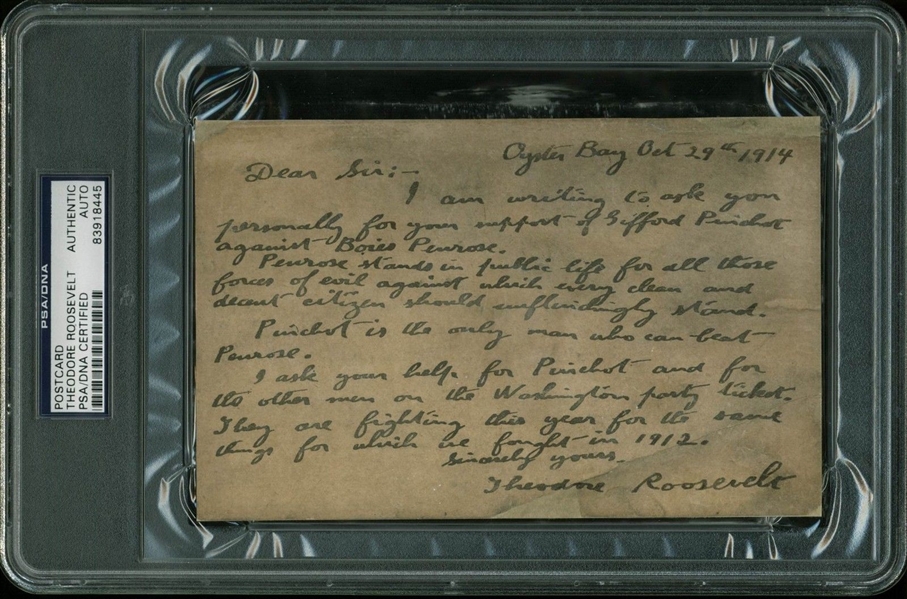 PSA/DNA
POSTCARD
THEODORE ROOSEVELT AUTHENTIC
PSA/DNA CERTIFIED AUTO
83918445
Oyster Bay Oct 29th 1914
Dear Sir:-
I am writing to ask you
personally for your support of Gifford Pinchot
against Boies Penrose.
Penrose stands in public life for all those
forces of evil against which every clean and
decent citizen should unflinchingly stand.
Pinchot is the only man who can beat
Penrose.
I ask your help for Pinchot and for
the other men on the Washington party ticket.
They are fighting this year for the same
things for which we fought in 1912.
Sincerely yours.
Theodore Roosevelt